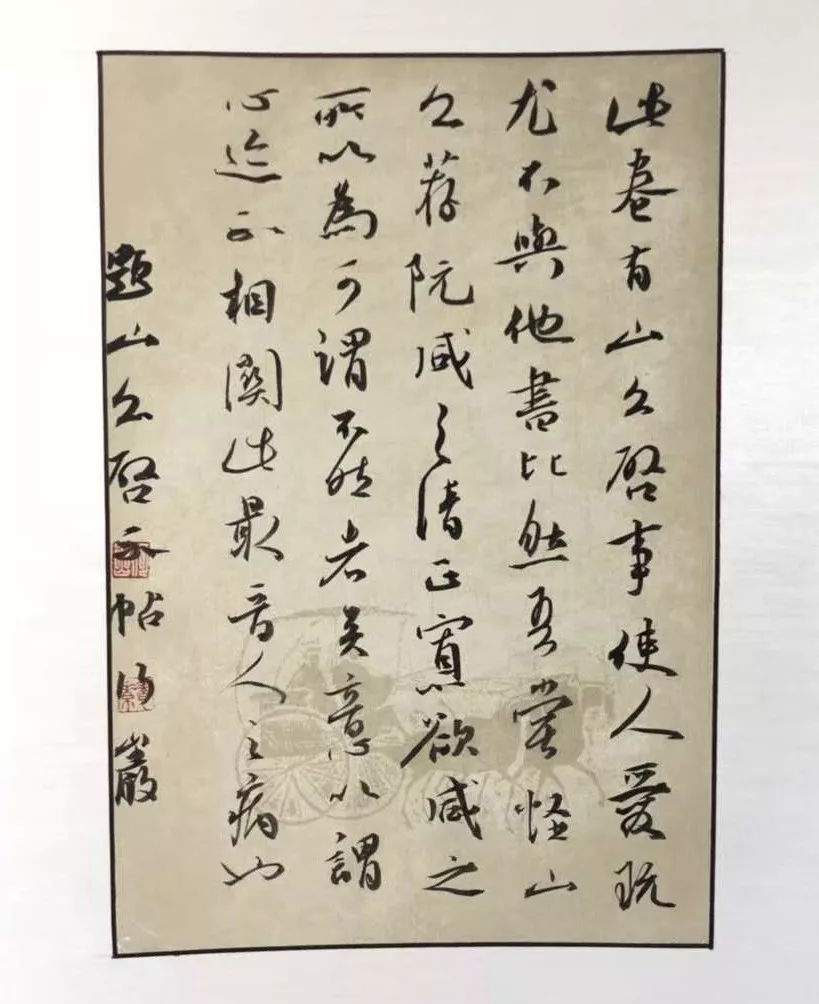 此卷有山公啓事使人愛玩
尤不與他書比然吾嘗怪山
公荐阮咸之清正寡欲咸之
所以為可謂不然者矣意以謂
心迹不相關此最音人之病也
題山公啓示帖 巖